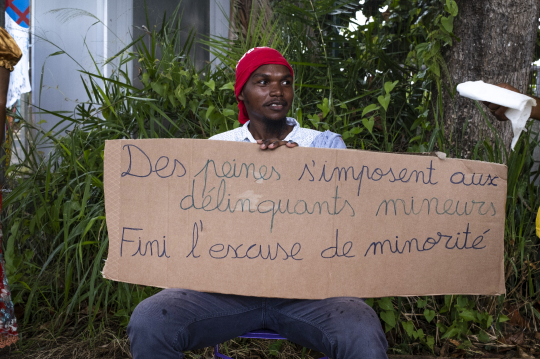 Des peines s'imposent aux
délinquants mineurs
Fini l'excuse de minorité